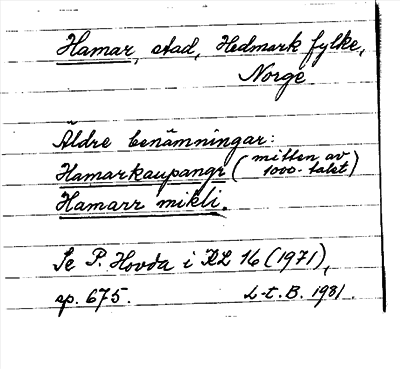 Hamar, stad, Hedmark fylke,
Norge
Äldre benämningar:
Hamarkaupangr (mitten av 1000-talet)
Hamarr mikli.
Se P. Hovda i KL 16 (1971),
sp. 675. L-t. B. 1981.